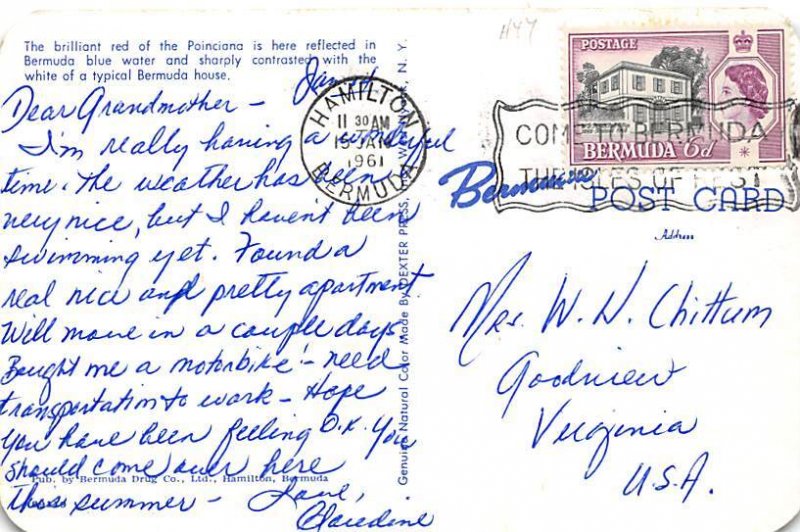 The brilliant red of the Poinciana is here reflected in
Bermuda blue water and sharply contrasted with the
white of a typical Bermuda house.
Dear Grandmother –
I'm really having a wonderful
time. The weather has been
very nice, but I haven't been
swimming yet. Found a
real nice and pretty apartment
Will move in a couple days
Bought me a motorbike – need
transportation to work – Hope
you have been feeling O.K. You
should come over here
this summer – Love,
Pub. by Bermuda Drug Co., Ltd., Hamilton, Bermuda
Genuine Natural Color Made By DEXTER PRESS, N. Y.
HAMILTON
11 30 AM
1961
BERMUDA
H47
POSTAGE
BERMUDA 6d
COME TO BERMUDA
THE ISLES OF REST
Bermuda
POST CARD
Address
Mrs. W. W. Chittum
Goodview
Virginia
U.S.A.